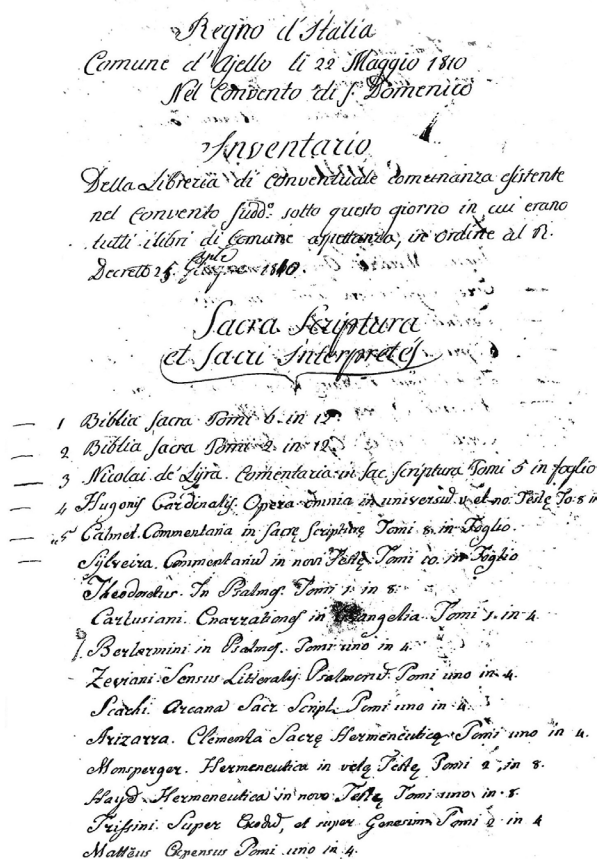 Regno d'Italia
Comune d'Ajello li 22 Maggio 1810
Nel Convento di S. Domenico
Inventario
Della Libreria di Conventuale comunanza esistente
nel Convento sudd.º sotto questo giorno in cui erano
tutti i libri di Comune aspettanza, in ordine al R.
Decreto 25 aple 1810.
Sacra Scriptura
et Sacri Interpretes
1 Biblia Sacra Tomi 6 in 12.
2 Biblia Sacra Tomi 2 in 12.
3 Nicolai de' Lyra. Comentaria in Sac. Scriptura Tomi 5 in foglio
4 Hugonis Cardinalis. Opera omnia in universū v. et no. Testę To. 8 in
5 Calmet. Commentaria in Sacrę Scriptūrę Tomi 8 in Foglio.
Sylveira. Commentariū in novi Testę Tomi 10 in Foglio
Theodoretus. In Psalmos. Tomi 1. in 8.
Carlusiani. Enarrationes in Evangelia. Tomi 1. in 4.
Berlarmini in Psalmos. Tomi uno in 4.
Zeviani. Sensus Litteralis Psalmorū. Tomi uno in 4.
Scachi. Arcana Sacr. Script. Tomi uno in 4.
Arizarra. Clementa Sacrę Hermeneuticę Tomi uno in 4.
Monsperger. Hermeneutica in vetę Testę Tomi 2, in 8.
Hayd Hermeneutica in novo Testę Tomi uno in 8
Trissini. Super Exodū, et super Genesim Tomi 2 in 4
Mattëus Cepensus Tomi uno in 4.